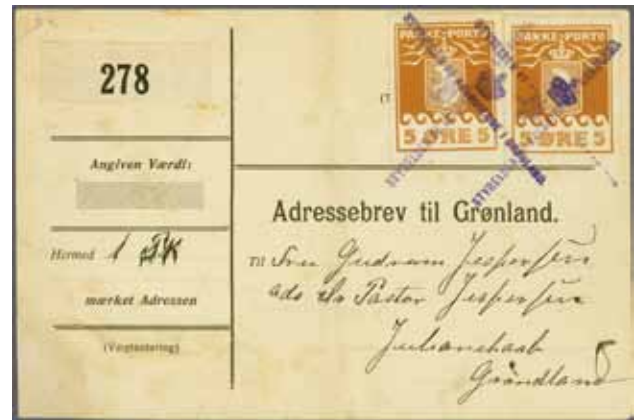 278
Angiven Værdi:
Hermed 1 PK
mærket Adressen
(Vægtantering)
PAKKE-PORTO
5 ØRE 5
PAKKE-PORTO
5 ØRE 5
(T
Adressebrev til Grønland.
Til Fru Gudrun Jespersen
ads Hr Pastor Jespersen
Julianehaab
Grönland